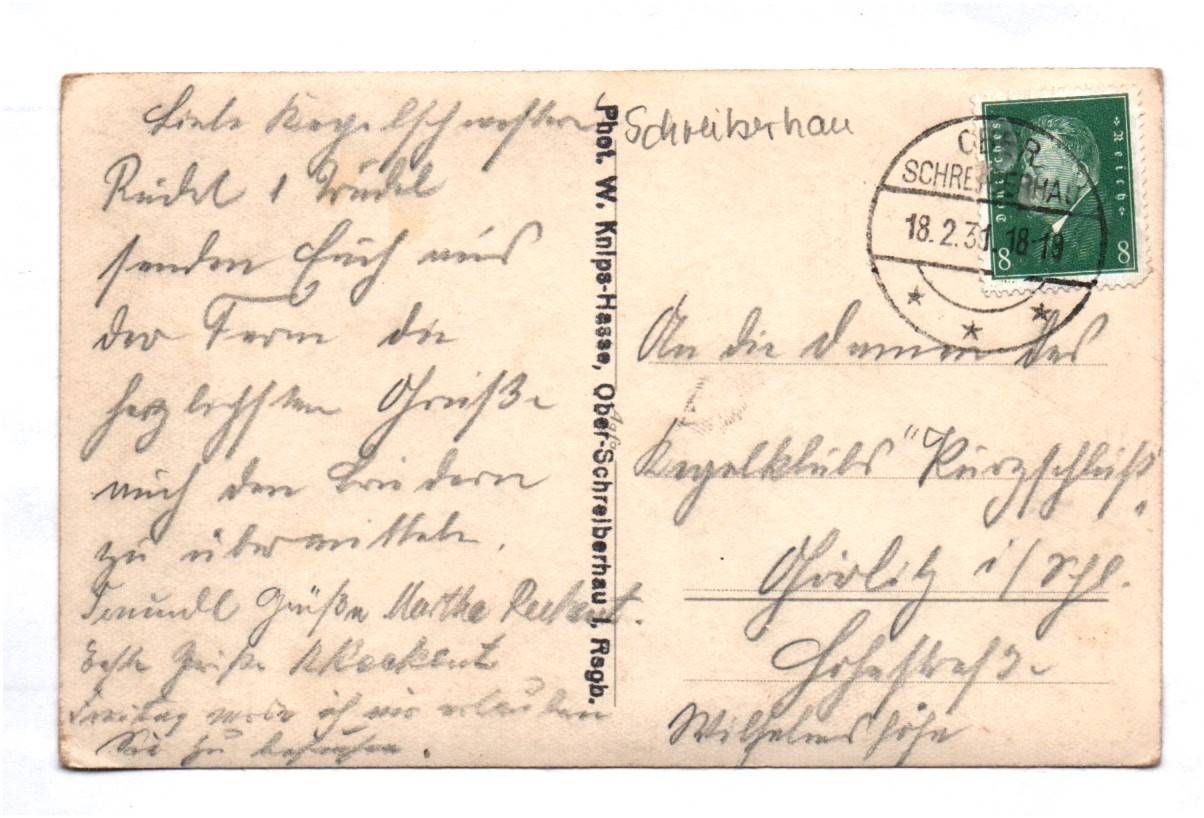 Liebe Kegelschwestern
Rudel & Trudel
senden Euch aus
der Ferne die
herzlichsten Grüße
auch den Brüdern
zu übermitteln.
Freundl Grüße Martha
Beste Grüße
Freitag werde ich mir erlauben
Sie zu besuchen.
Phot. W. Knips-Hasse, Ober-Schreiberhau i. Rsgb.
Schreiberhau
OBER
SCHREIBERHAU
18.2.31. 18-19
Deutsches Reich
8 8
An die Damen des
Kegelklubs "Kurzschluß"
Görlitz i/Schl.
Hohestraße
Wilhelmshöhe